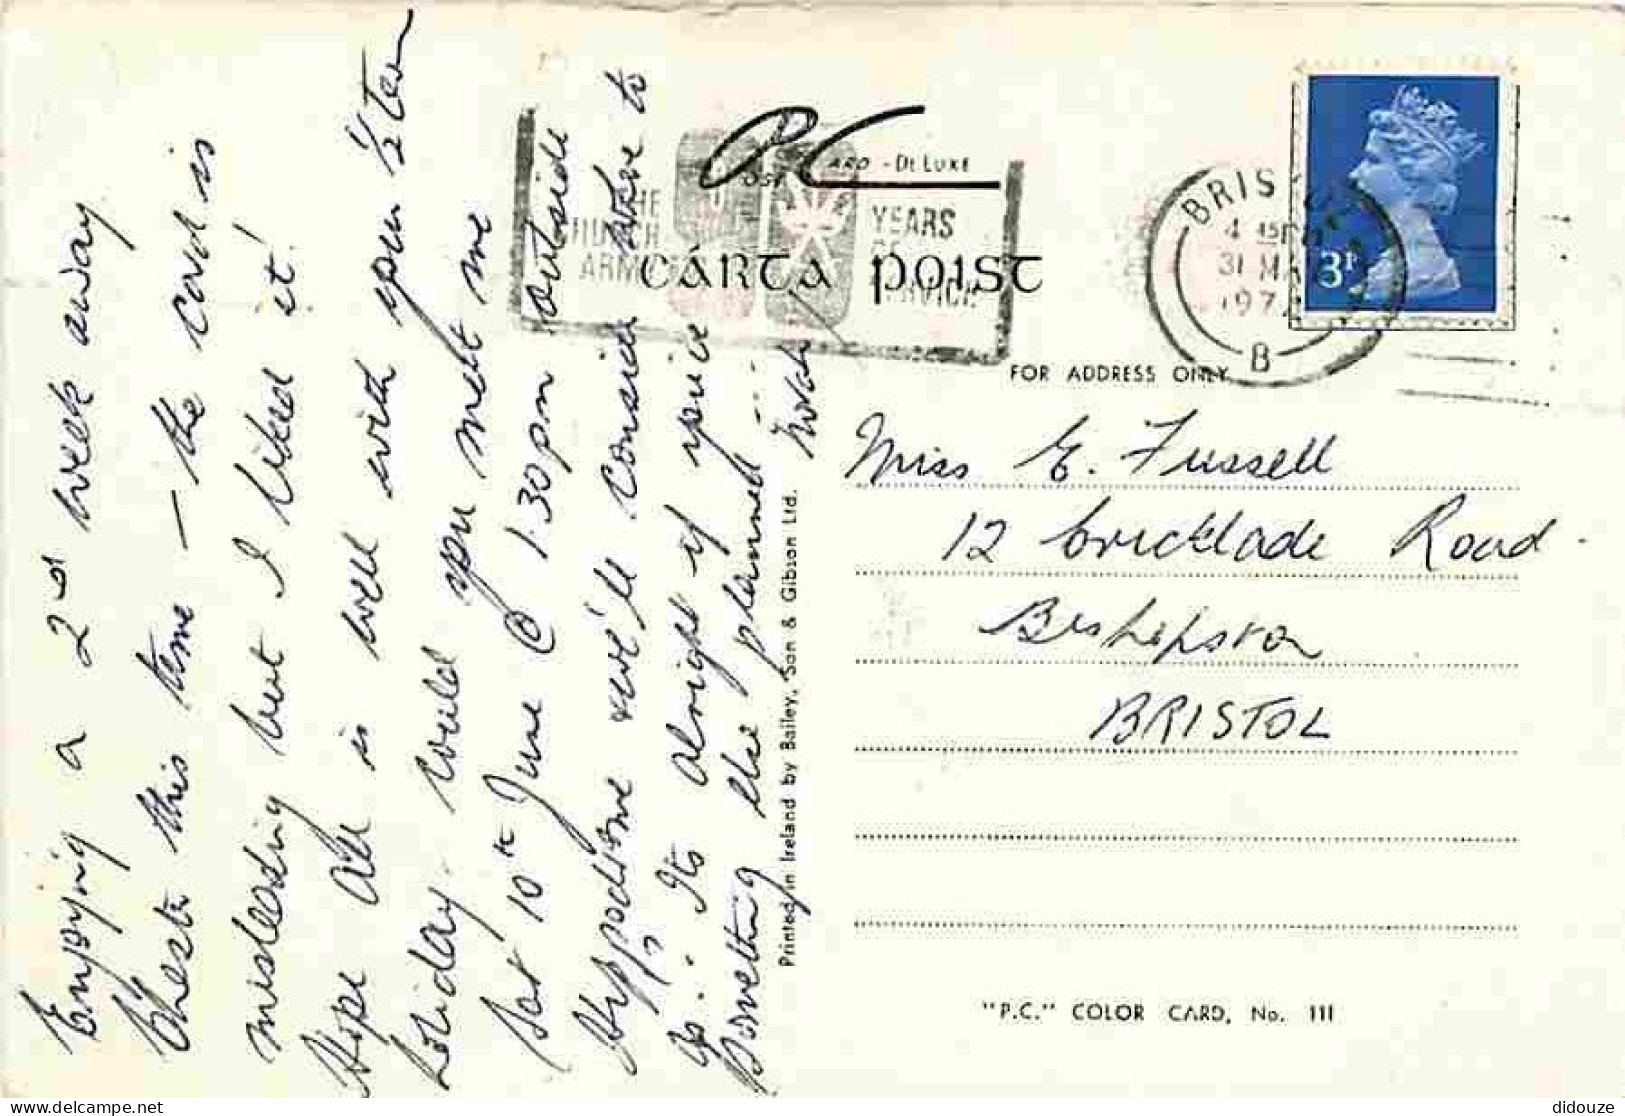 Enjoying a 2nd week away
Chester this time - the card is
misleading but I liked it!
Hope all is well with you ½ term
holiday. Could you meet me
Sat 10th June @ 1.30pm outside
Hippodrome & we'll consider where to
go? Its alright if you've
something else planned
PC
POST CARD - DE LUXE
THE CHURCH ARMY
YEARS OF SERVICE
CÁRTA POIST
FOR ADDRESS ONLY
BRISTOL
4 45 PM
31 MAY
197
B
3P
Miss E. Fussell
12 Cricklade Road.
Bishopston
BRISTOL
Printed in Ireland by Bailey, Son & Gibson Ltd.
"P.C." COLOR CARD, No. 111
didouze
delcampe.net